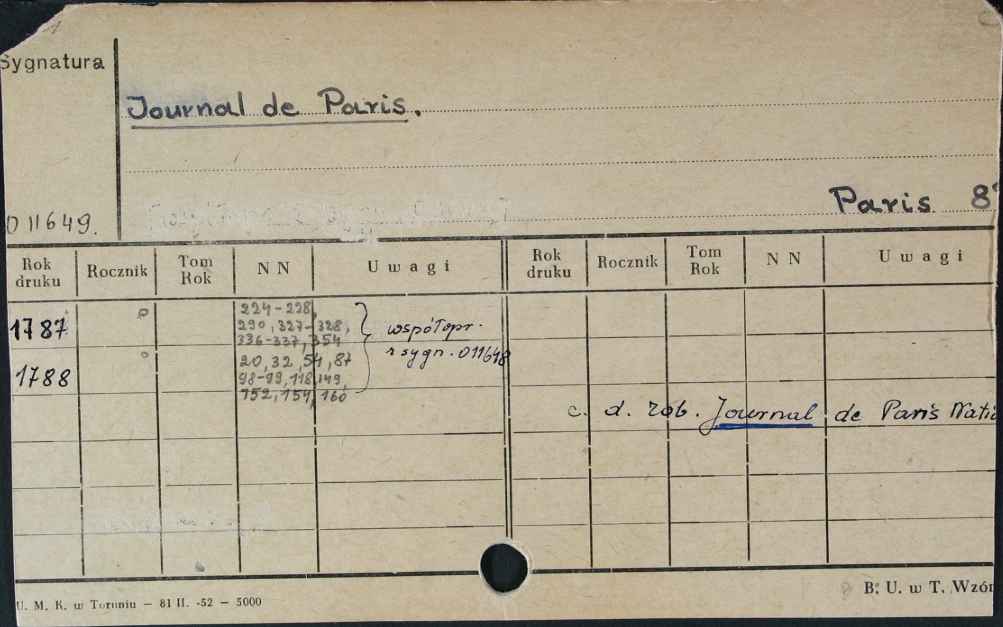 Sygnatura
Journal de Paris.
Paris 8°
011649.
Rok druku Rocznik Tom Rok N N Uwagi Rok druku Rocznik Tom Rok N N Uwagi
1787 224-228,
290, 327-328,
336-337, 354
współopr.
z sygn. 011648
1788 20, 32, 54, 87
98-99, 118, 149,
152, 154, 160
c. d. zob. Journal de Paris Natio
U. M. K. w Toruniu — 81 II. -52 — 5000
B. U. w T. Wzór